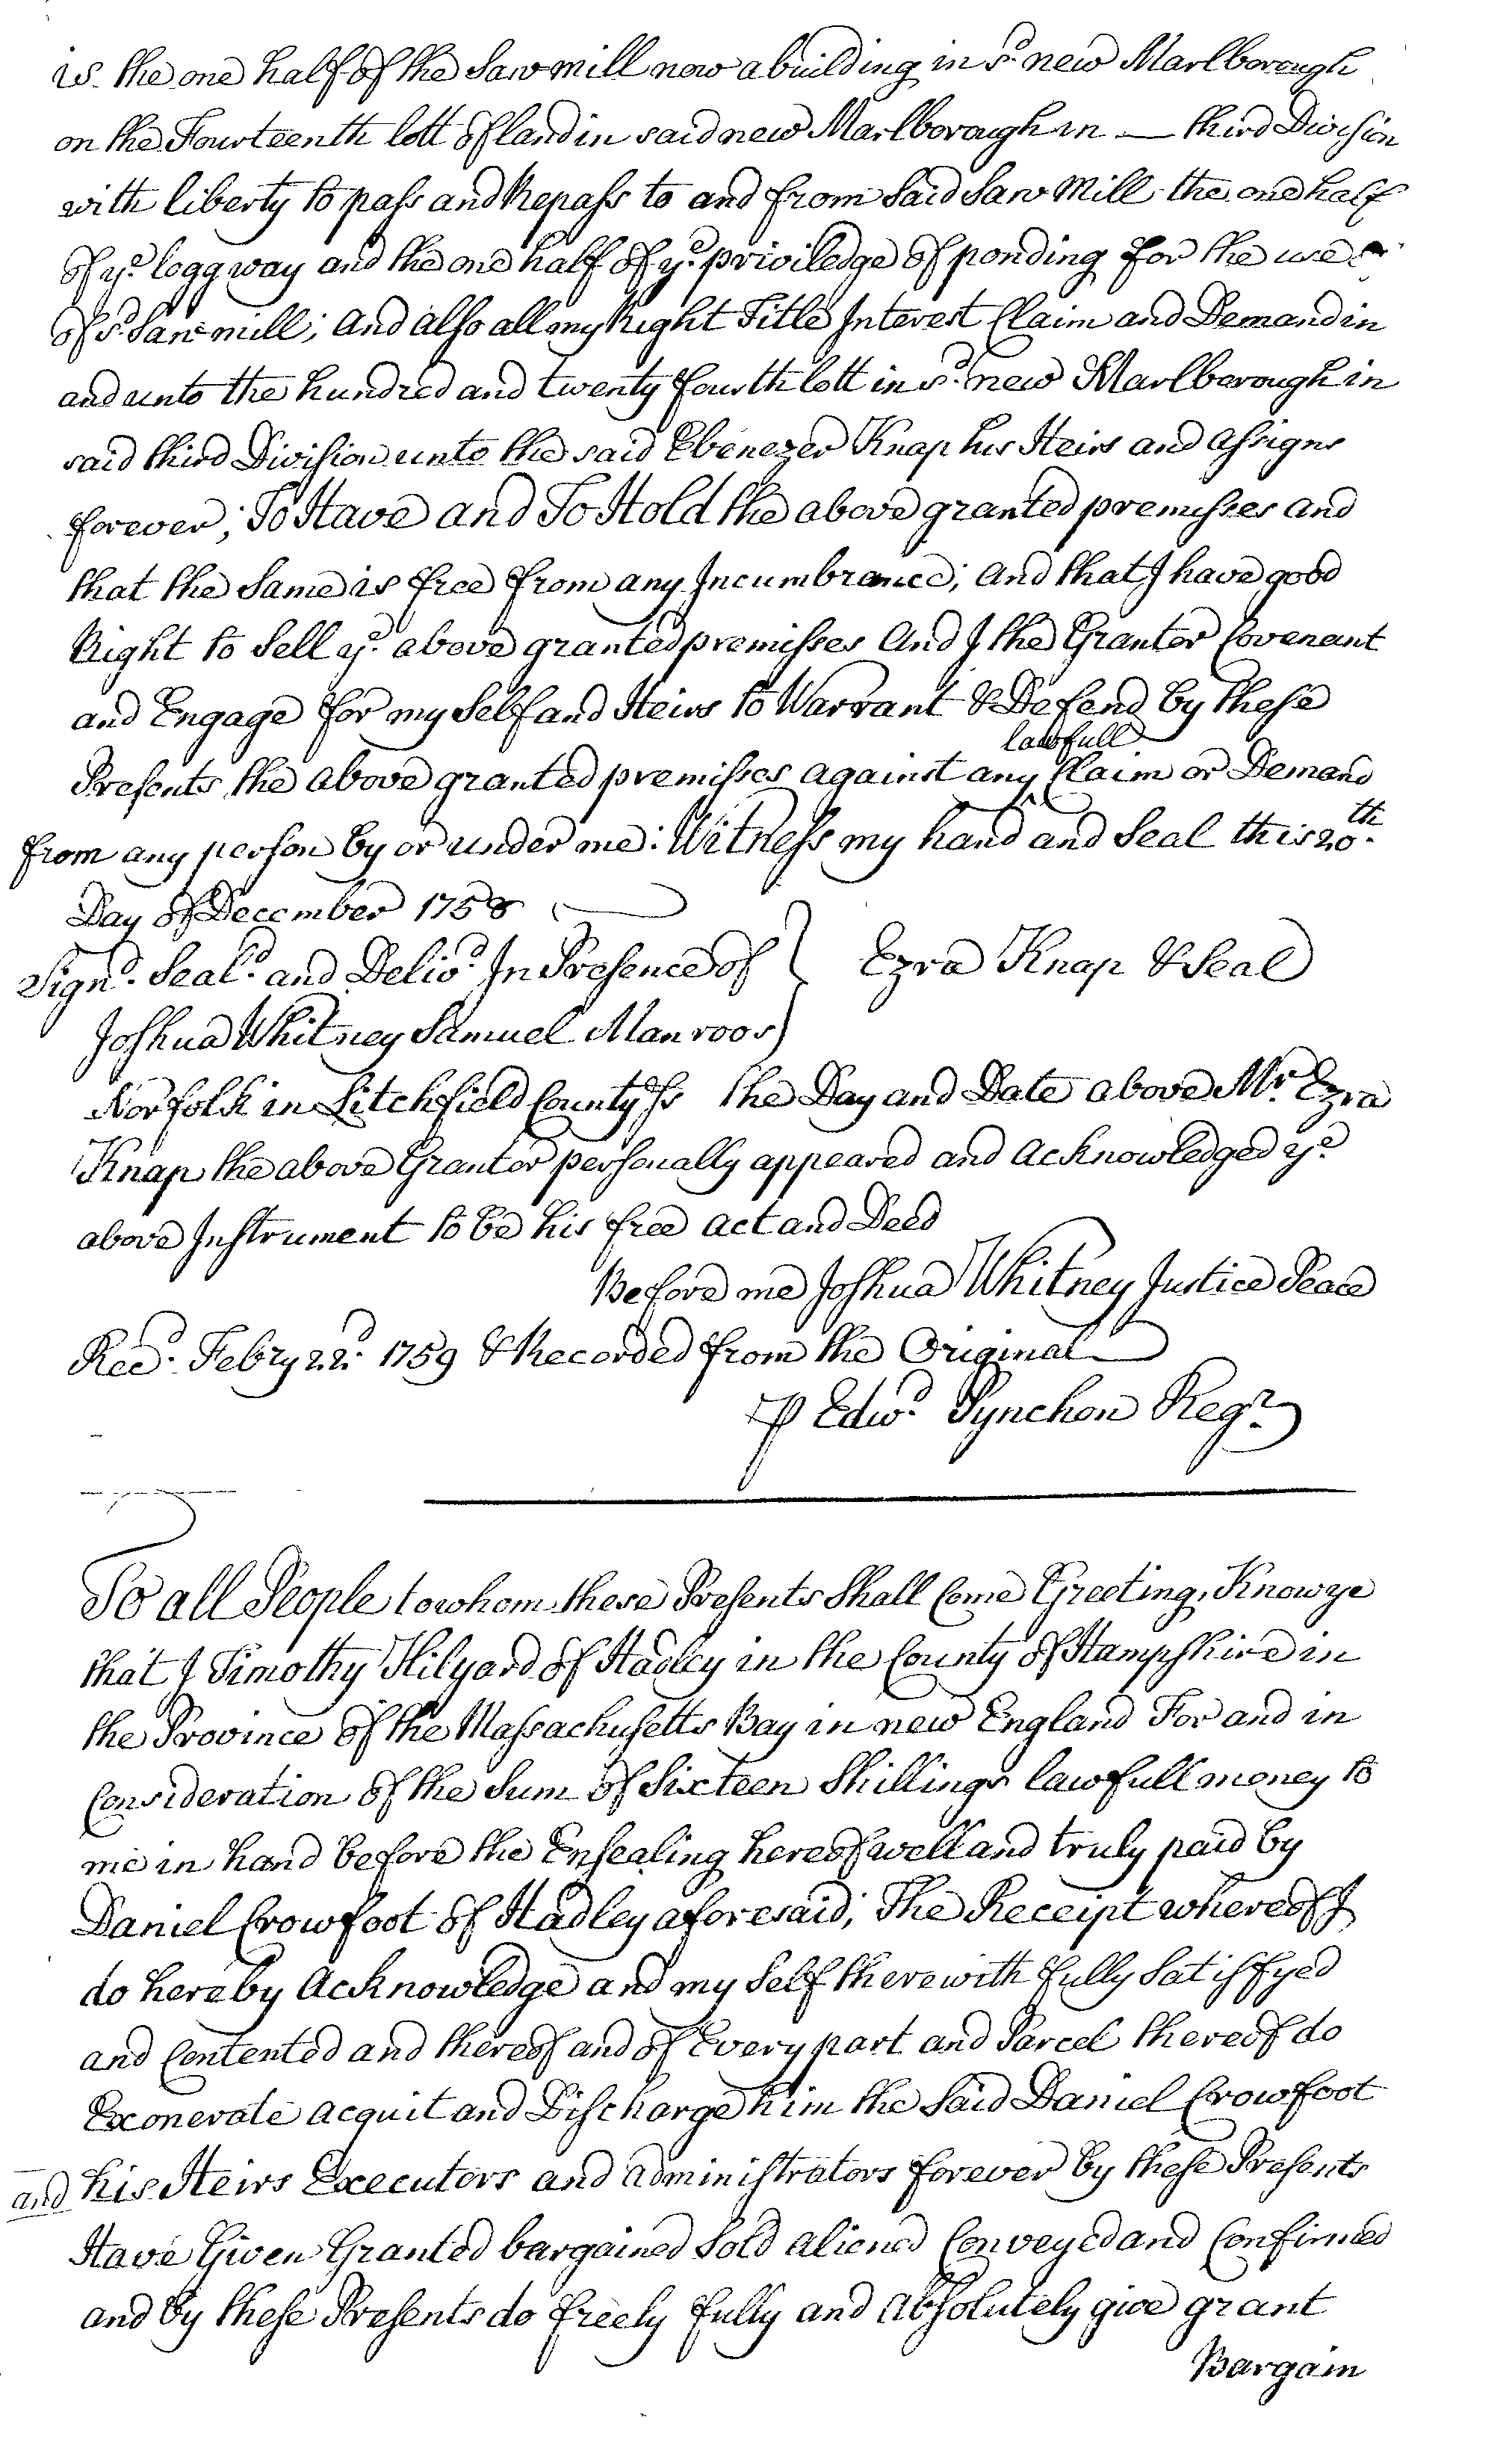 is the one half of the Saw mill now a building in sd. new Marlborough
on the Fourteenth lott of land in said new Marlborough in — third Division
with liberty to pass and Repass to and from Said Saw Mill the one half
of ye. logg way and the one half of ye. priviledge of ponding for the use
of sd. Saw mill; And also all my Right Title Interest Claim and Demand in
and unto the hundred and twenty fourth lott in sd. new Marlborough in
said third Division unto the said Ebenezer Knap his Heirs and Assigns
forever; To Have and To Hold the above granted premisses and
that the Same is free from any Incumbrance; And that I have good
Right to Sell ye. above granted premisses And I the Grantor Covenant
and Engage for my Self and Heirs to Warrant & Defend by these
Presents the above granted premisses against any ^lawfull Claim or Demand
from any person by or under me: Witness my hand and Seal this 20th.
Day of December 1758
Signd. Seald. and Delivd. In Presence of } Ezra Knap & Seal
Joshua Whitney Samuel Manroos
Norfolk in Litchfield County Ss the Day and Date above Mr. Ezra
Knap the above Grantor personally appeared and Acknowledged ye
above Instrument to be his free act and Deed
Before me Joshua Whitney Justice Peace
Recd. Febry 22d. 1759 & Recorded from the Original
P Edwd. Pynchon Regr.
To all People to whom these Presents Shall Come Greeting, Know ye
that I Timothy Hilyard of Hadley in the County of Hampshire in
the Province of the Massachusetts Bay in new England For and in
Consideration of the Sum of Sixteen Shillings lawfull money to
me in hand before the Ensealing hereof well and truly paid by
Daniel Crowfoot of Hadley aforesaid; The Receipt whereof I
do hereby Acknowledge and my Self therewith fully Satisfyed
and Contented and thereof and of Every part and Parcel thereof do
Exonerate acquit and Discharge him the Said Daniel Crowfoot
and his Heirs Executors and Administrators forever by these Presents
Have Given Granted bargained Sold aliened Conveyed and Confirmed
and by these Presents do freely fully and Absolutely give grant
Bargain